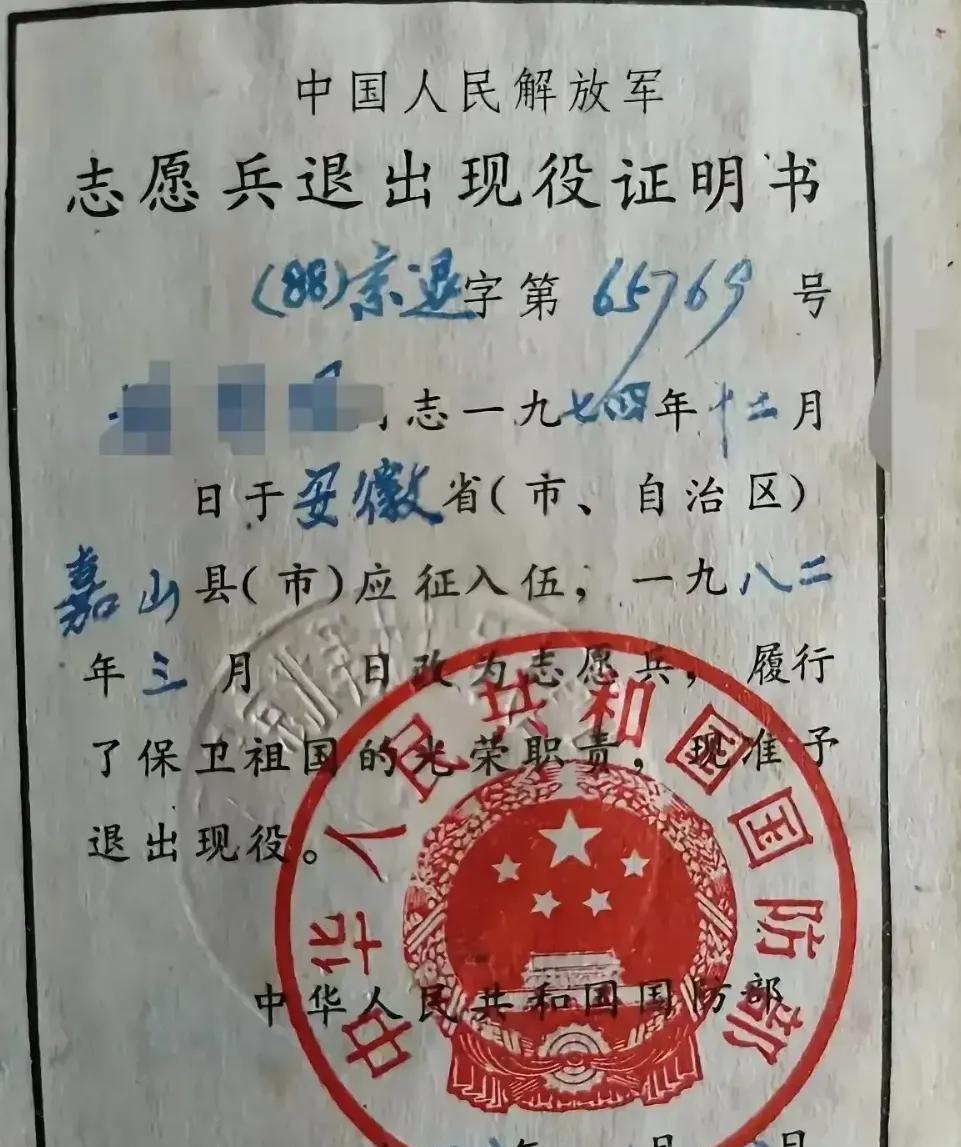 中国人民解放军
志愿兵退出现役证明书
(88)京退字第 65769 号
志一九七四年十二月
日于安徽省(市、自治区)
嘉山县(市)应征入伍，一九八二
年三月 日改为志愿兵，履行
了保卫祖国的光荣职责，现准予
退出现役。
中华人民共和国国防部
中华人民共和国国防部
年 月